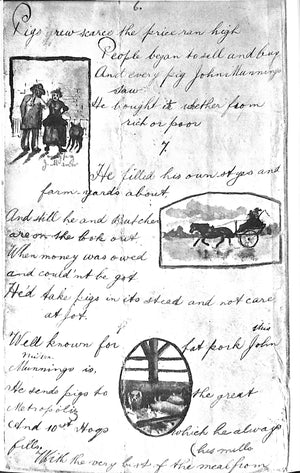 6.
Pigs grew scarce the price ran high
People began to sell and buy
And every pig John Munnings
saw
He bought it wether from
rich or poor
7.
He filled his own styes and
farm yards about
And still he and Butcher
are on the look out
When money was owed
and could'nt be got
He'd take pigs in its stead and not care
a jot.
8
Well known for fat pork this John
Munnings is.
He sends pigs to the great
Metropolis
And 10 st Hogs which he always
fills
With the very best of the meal from
his mills